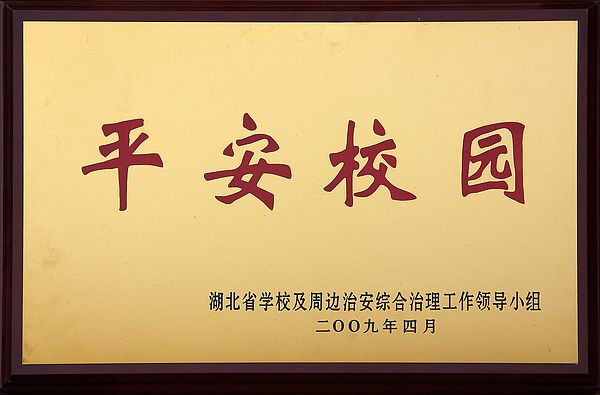 平安校园
湖北省学校及周边治安综合治理工作领导小组
二OO九年四月